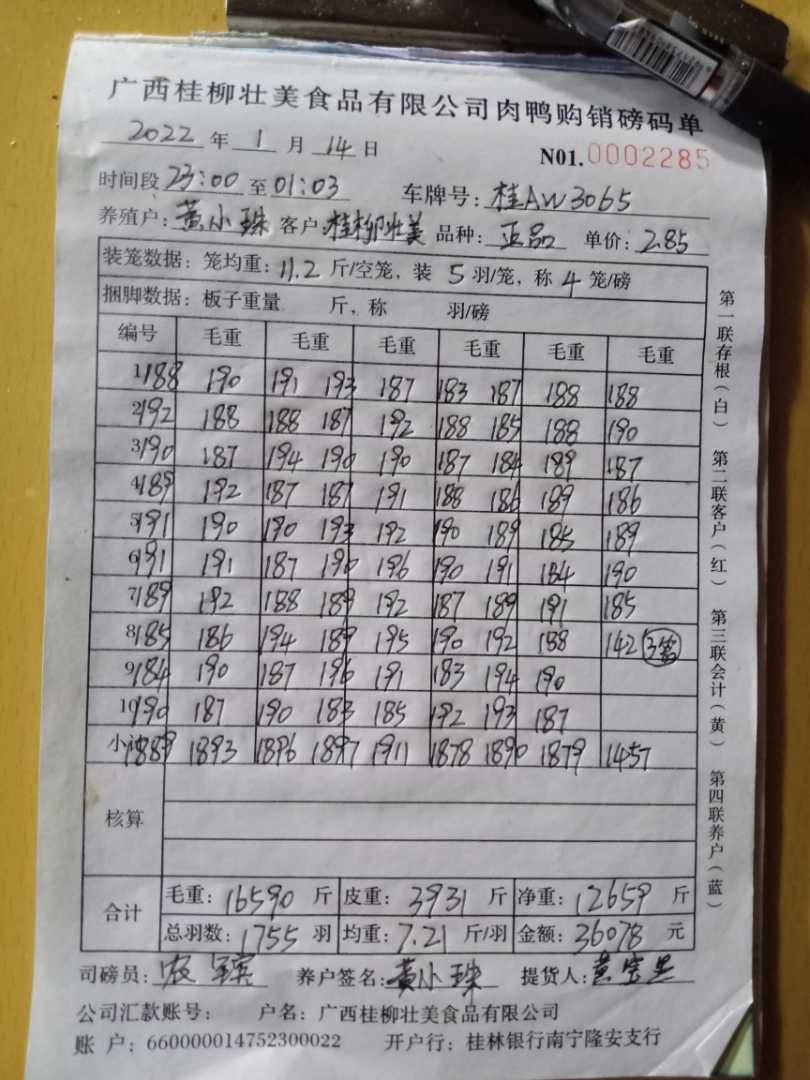 广西桂柳壮美食品有限公司肉鸭购销磅码单
2022 年 1 月 14 日 N01.0002285
时间段 23:00 至 01:03 车牌号: 桂AW3065
养殖户: 黄小珠 客户: 桂柳壮美 品种: 正品 单价: 2.85
装笼数据: 笼均重: 11.2 斤/空笼, 装 5 羽/笼, 称 4 笼/磅
捆脚数据: 板子重量 斤, 称 羽/磅
编号 毛重 毛重 毛重 毛重 毛重 毛重
1 188 190 191 193 187 183 187 188 188
2 192 188 188 187 192 188 185 188 190
3 190 187 194 190 190 187 184 189 187
4 189 192 187 187 191 188 186 189 186
5 191 190 190 193 192 190 189 185 189
6 191 191 187 190 196 190 191 184 190
7 189 192 188 189 192 187 189 191 185
8 185 186 194 189 195 190 192 188 142 3笼
9 184 190 187 196 191 183 194 190
10 190 187 190 183 185 192 193 187
小计 1889 1893 1896 1897 1911 1878 1890 1879 1457
核算
合计
毛重: 16590 斤 皮重: 3931 斤 净重: 12659 斤
总羽数: 1755 羽 均重: 7.21 斤/羽 金额: 36078 元
司磅员: 养户签名: 黄小珠 提货人:
公司汇款账号: 户名: 广西桂柳壮美食品有限公司
账 户: 660000014752300022 开户行: 桂林银行南宁隆安支行
第一联存根(白) 第二联客户(红) 第三联会计(黄) 第四联养户(蓝)